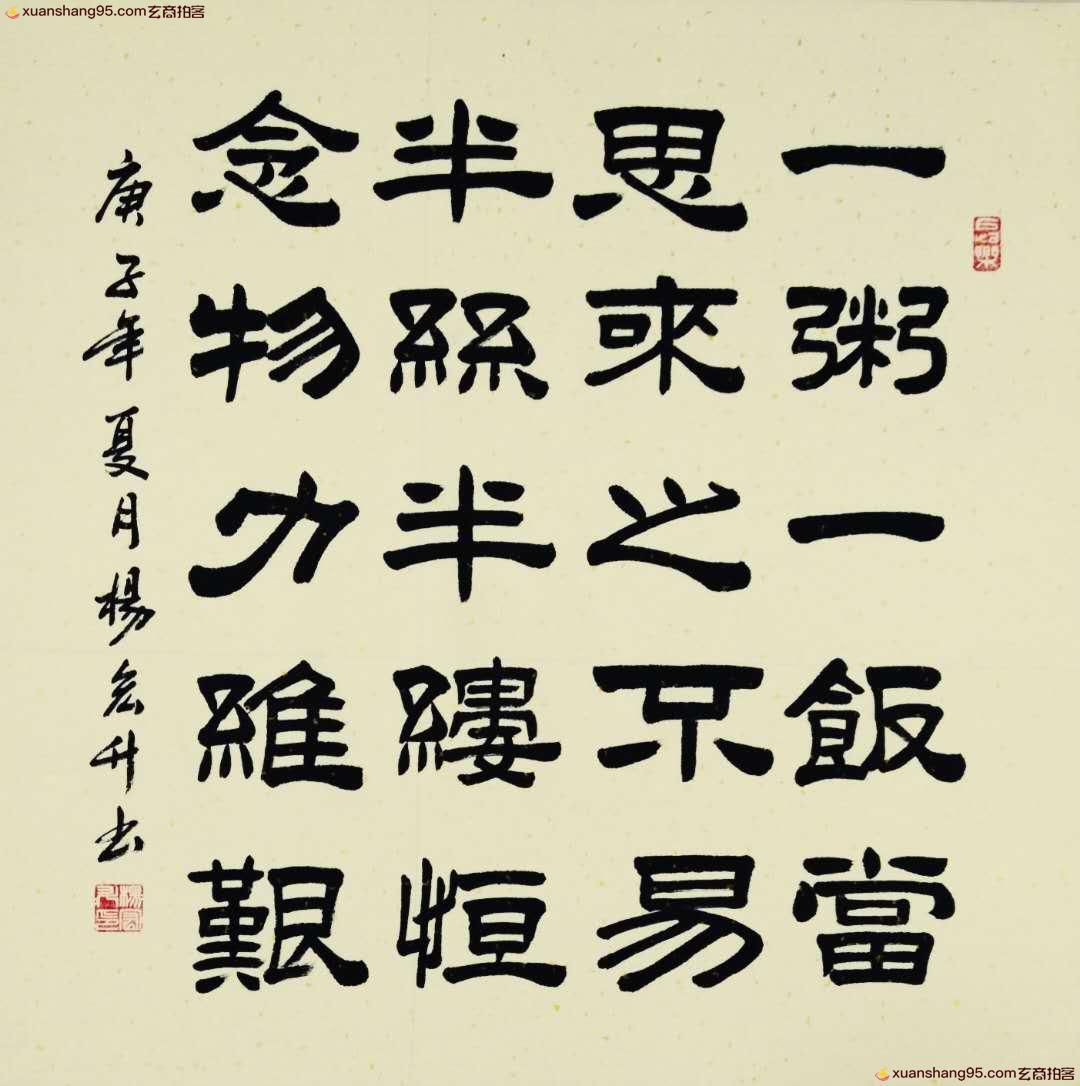 xuanshang95.com玄商拍客
一粥一飯當
思來之不易
半絲半縷恒
念物力維艱
庚子年夏月楊宏升书
xuanshang95.com玄商拍客